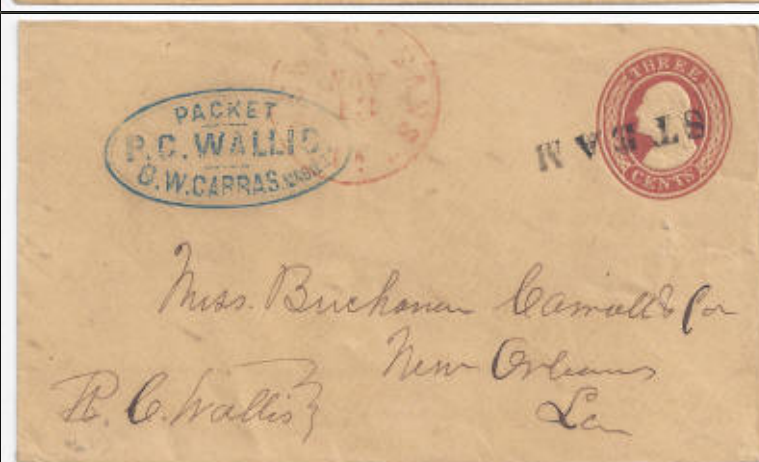 PACKET
P.C. WALLIS
O.W. CARRAS. MASTER
NOV
13
THREE
STEAM
CENTS
Buchanan Carroll & Co
New Orleans
La
P. C. Wallis